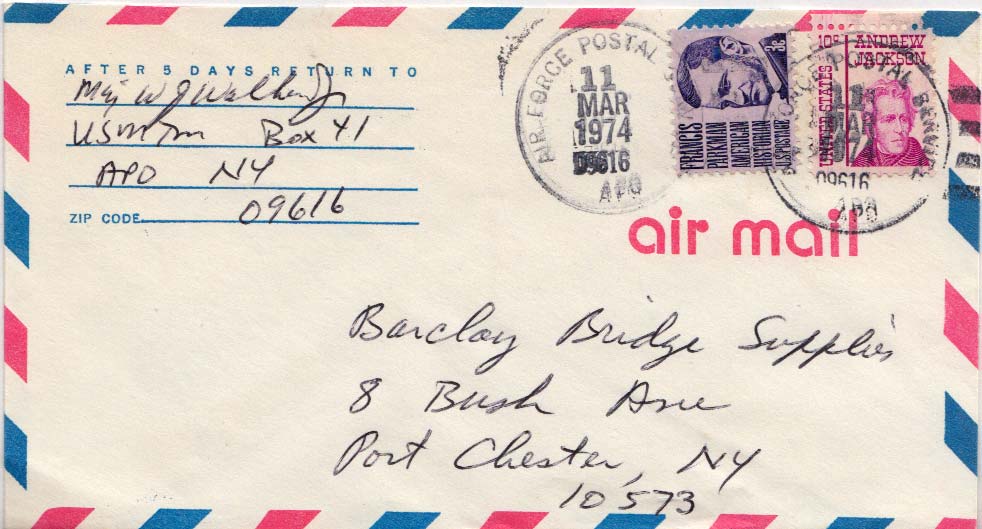 AFTER 5 DAYS RETURN TO
Maj W J Walker Jr
USMTM Box 41
APO NY
ZIP CODE 09616
AIR FORCE POSTAL
11
MAR
1974
09616
APO
3¢
FRANCIS
PARKMAN
AMERICAN
HISTORIAN
US POSTAGE
10¢ ANDREW
JACKSON
UNITED STATES
POSTAL SERVICE
11
MAR
1974
09616
APO
air mail
Barclay Bridge Supplies
8 Bush Ave
Port Chester, NY
10573